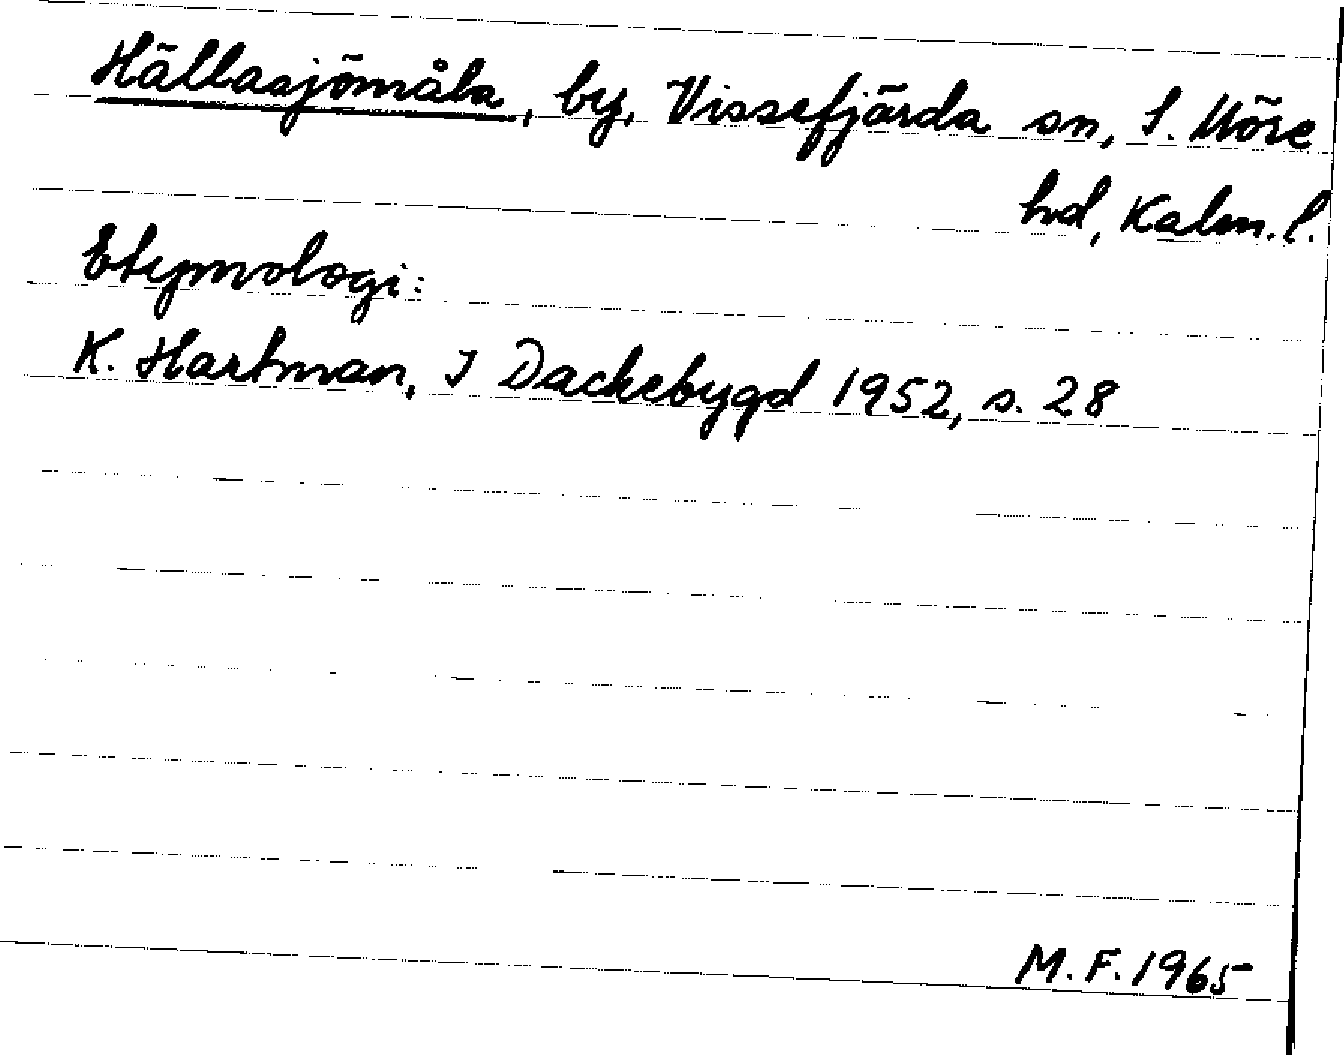 Hällasjömåla, by, Vissefjärda sn, S. Möre
hd, Kalm. l.
Etymologi:
K. Hartman, I Dackebygd 1952, s. 28
M. F. 1965